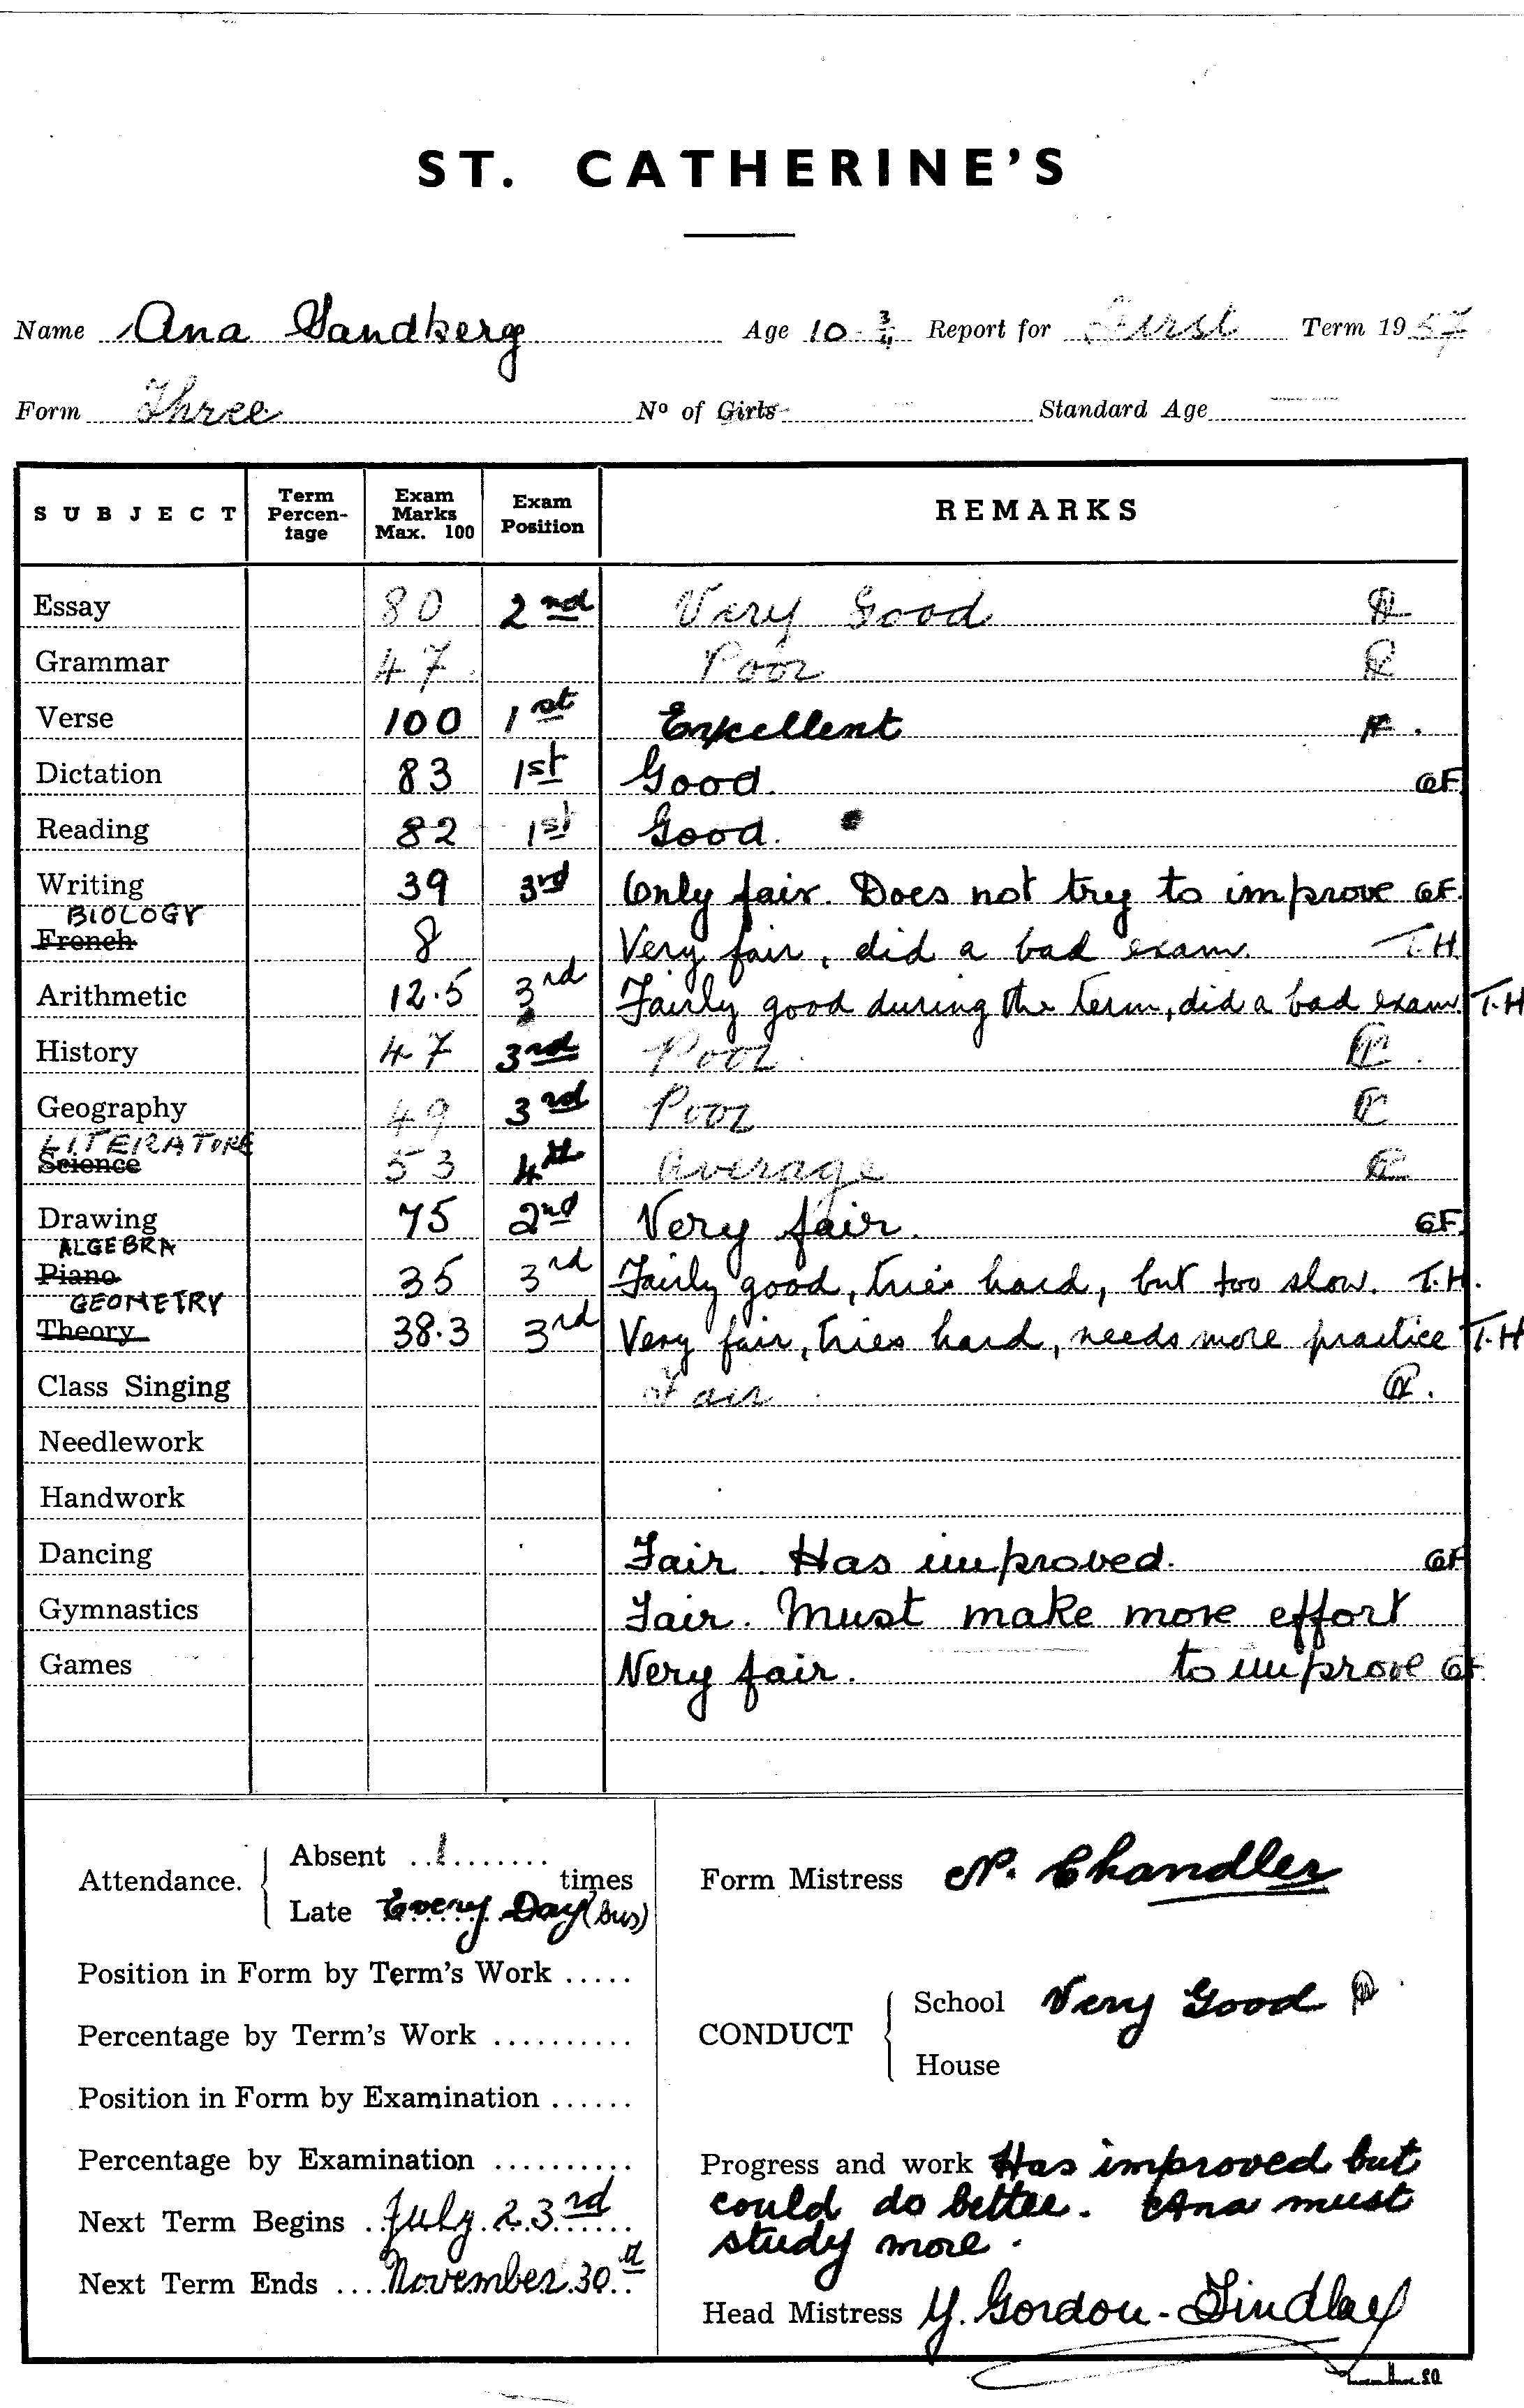 ST. CATHERINE'S
Name Ana Sandberg Age 10 3/4 Report for First Term 1957
Form Three Nº of Girls Standard Age
SUBJECT Term Percen-tage Exam Marks Max. 100 Exam Position REMARKS
Essay 80 2nd Very Good
Grammar 47. Poor
Verse 100 1st Excellent
Dictation 83 1st Good. GF
Reading 82 1st Good.
Writing 39 3rd Only fair. Does not try to improve GF.
BIOLOGY
French 8 Very fair, did a bad exam. T.H
Arithmetic 12.5 3rd Fairly good during the term, did a bad exam. T.H
History 47 3rd Poor.
Geography 49 3rd Poor
LITERATURE
Science 53 4th Average
Drawing 75 2nd Very fair. GF.
ALGEBRA
Piano 35 3rd Fairly good, tries hard, but too slow. T.H.
GEOMETRY
Theory 38.3 3rd Very fair, tries hard, needs more practice T.H
Class Singing Fair
Needlework
Handwork
Dancing Fair. Has improved. GF
Gymnastics Fair. Must make more effort
Games Very fair. to improve GF
Attendance. Absent 1 times
Late Every Day (bus)
Form Mistress N. Chandler
Position in Form by Term's Work .....
Percentage by Term's Work ..........
CONDUCT School Very Good
House
Position in Form by Examination ......
Percentage by Examination ..........
Progress and work Has improved but
could do better. Ana must
study more.
Next Term Begins July 23rd
Next Term Ends November 30th
Head Mistress Y. Gordon-Findlay